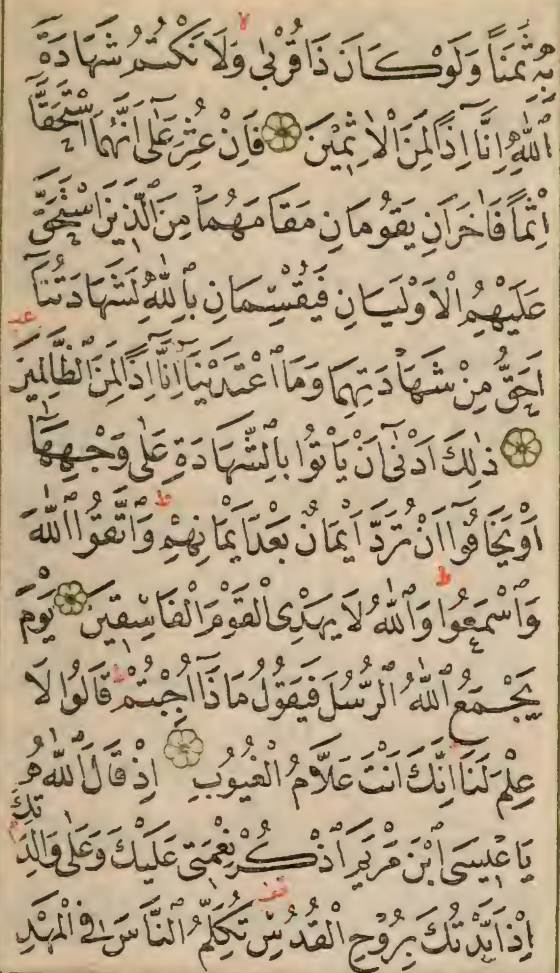 بِهِ ثَمَنًا وَلَوْ كَانَ ذَا قُرْبٰى وَلَا نَكْتُمُ شَهَادَةَ
اللّٰهِ اِنَّا اِذًا لَمِنَ الْاٰثِمٖينَ فَاِنْ عُثِرَ عَلٰٓى اَنَّهُمَا اسْتَحَقَّٓا
اِثْمًا فَاٰخَرَانِ يَقُومَانِ مَقَامَهُمَا مِنَ الَّذٖينَ اسْتَحَقَّ
عَلَيْهِمُ الْاَوْلَيَانِ فَيُقْسِمَانِ بِاللّٰهِ لَشَهَادَتُنَٓا
عب
اَحَقُّ مِنْ شَهَادَتِهِمَا وَمَا اعْتَدَيْنَٓا اِنَّٓا اِذًا لَمِنَ الظَّالِمٖينَ
ذٰلِكَ اَدْنٰٓى اَنْ يَأْتُوا بِالشَّهَادَةِ عَلٰى وَجْهِهَٓا
اَوْ يَخَافُٓوا اَنْ تُرَدَّ اَيْمَانٌ بَعْدَ اَيْمَانِهِمْ ط وَاتَّقُوا اللّٰهَ
وَاسْمَعُوا ط وَاللّٰهُ لَا يَهْدِى الْقَوْمَ الْفَاسِقٖينَ يَوْمَ
يَجْمَعُ اللّٰهُ الرُّسُلَ فَيَقُولُ مَاذَٓا اُجِبْتُمْ ط قَالُوا لَا
عِلْمَ لَنَا اِنَّكَ اَنْتَ عَلَّامُ الْغُيُوبِ اِذْ قَالَ اللّٰهُ
يَا عٖيسَى ابْنَ مَرْيَمَ اذْكُرْ نِعْمَتٖى عَلَيْكَ وَعَلٰى وَالِدَتِكَ
اِذْ اَيَّدْتُكَ بِرُوحِ الْقُدُسِ قف تُكَلِّمُ النَّاسَ فِى الْمَهْدِ